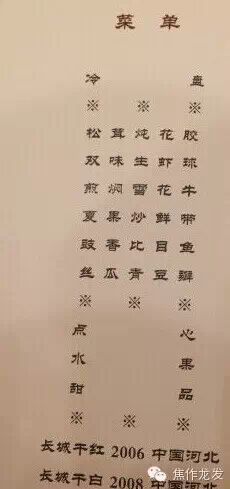 菜 单
冷 盘
※ ※ ※
松茸炖花胶
双味生虾球
煎焖雪花牛
夏果炒鲜带
豉香比目鱼
丝瓜青豆瓣
※ ※ ※
点 心
水 果
甜 品
※ ※ ※
长城干红 2006 中国河北
长城干白 2008 中国河北
焦作龙发